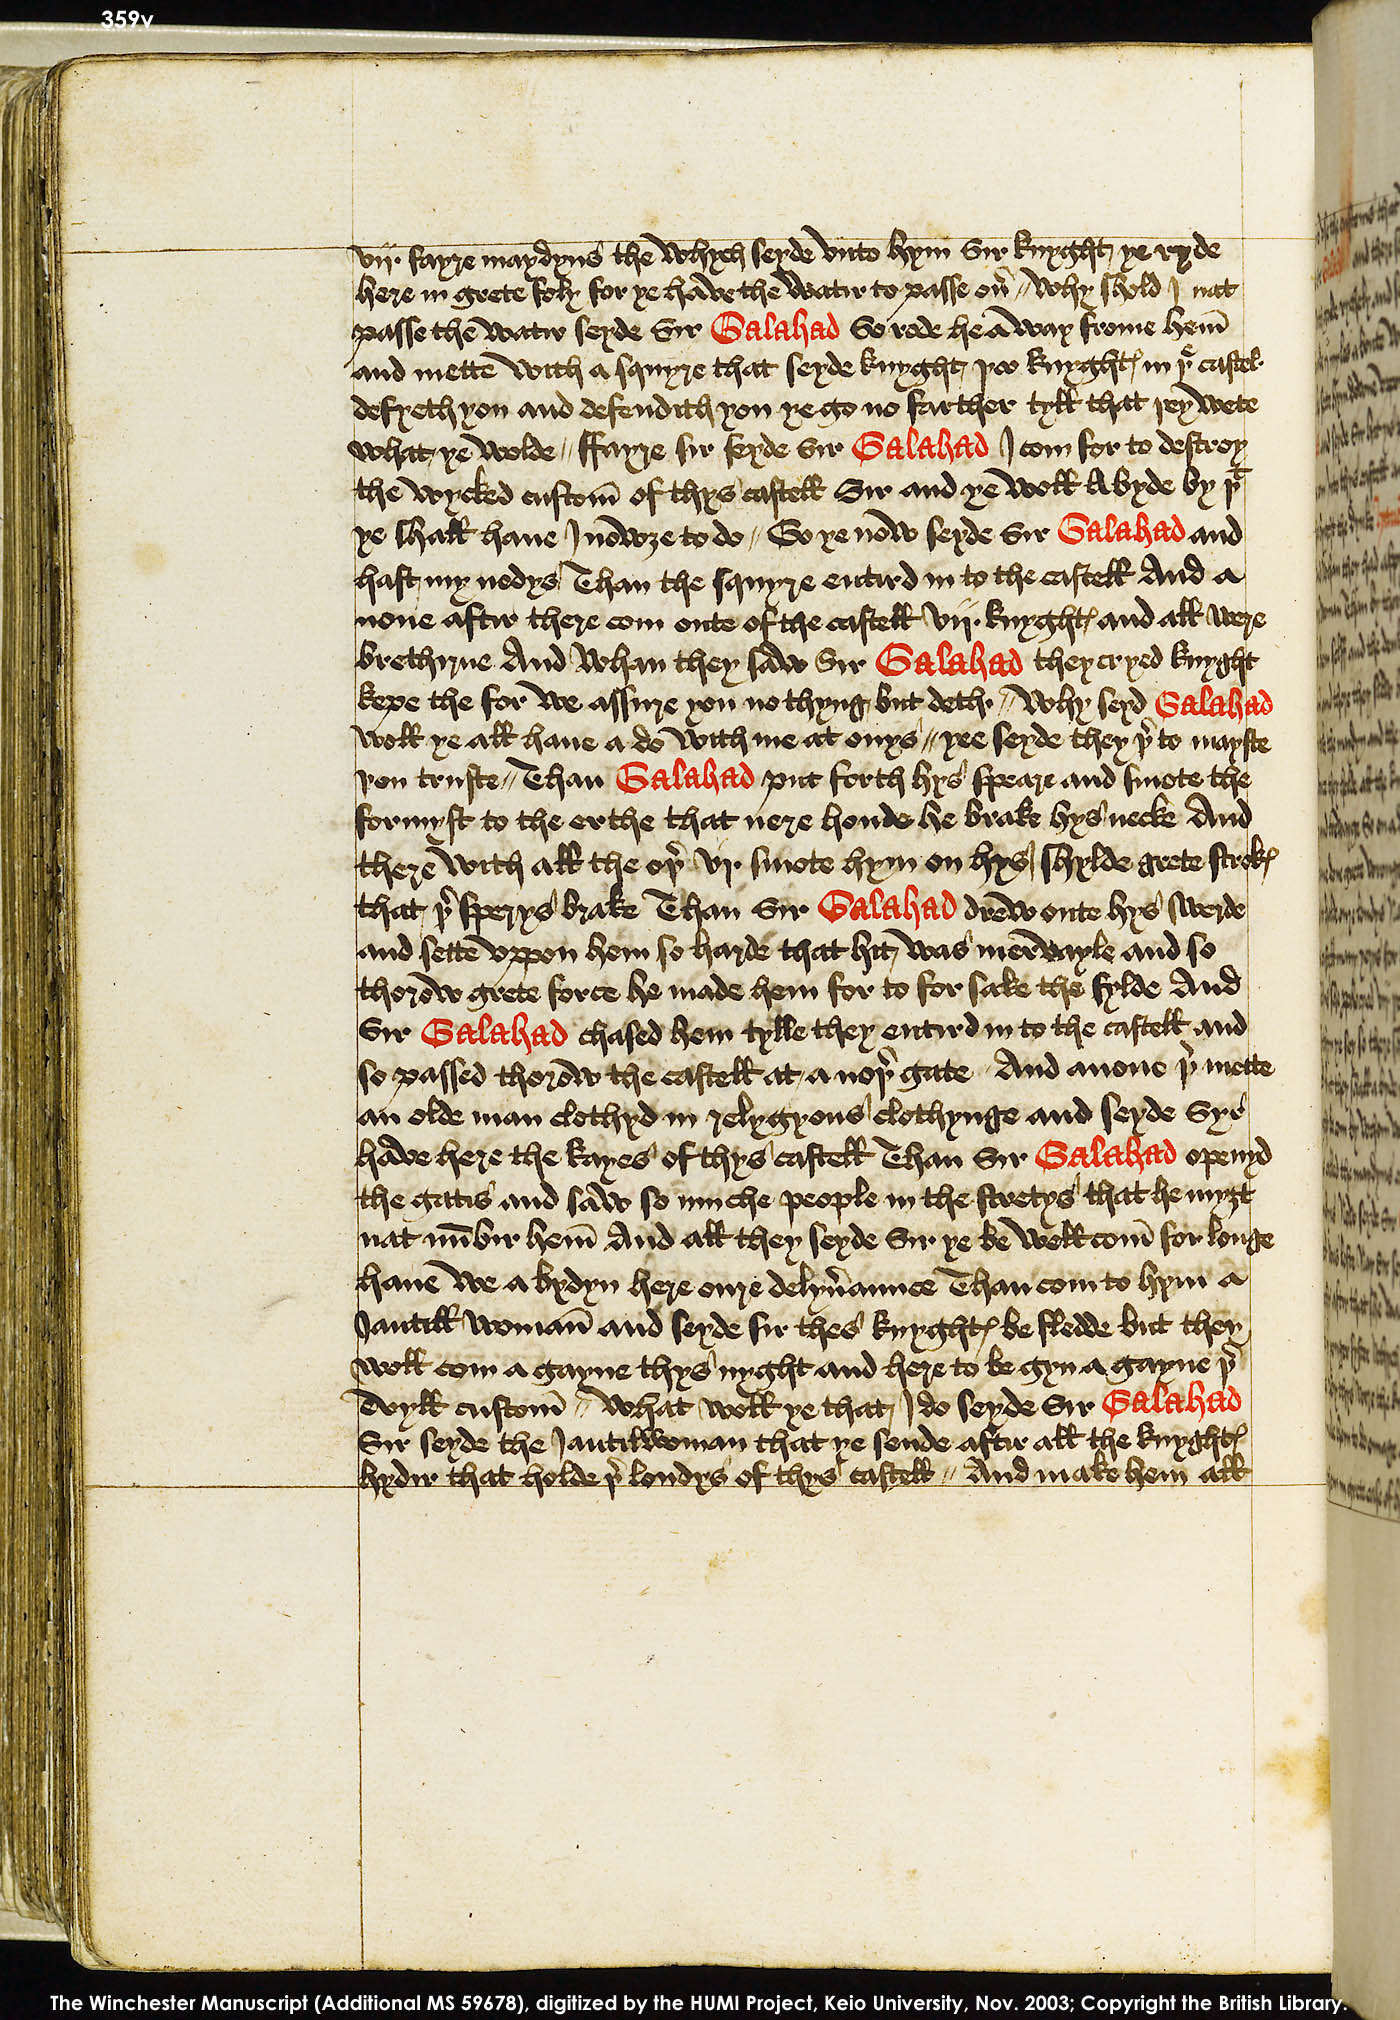 359v
vij. fayre maydyns the whych seyde vnto hym Sir knyght ye ryde
here in grete foly for ye haue the watir to passe ou͛ // Why shold I nat
passe the watir seyde Sir Galahad So rode he a way frome hem̄
and mette with a squyre that seyde knyght þoo knyghtꝭ in þͤ castel
defyeth you and defendith you ye go no farther tyll that þey wete
what ye wolde // ffayre sir seyde Sir Galahad I com for to destroy
the wycked custom̄ of thys castell Sir and ye woll Abyde by þͭ
ye shall haue I nowȝe to do // Go ye now seyde Sir Galahad and
hast my nedys Than the squyre entird in to the castell And a
none aftir there com oute of the castell vij. knyghtꝭ and all were
brethirne And whan they saw Sir Galahad they cryed knyght
kepe the for we assure you no thyng but deth. // Why seyd Galahad
woll ye all haue a do with me at onys // yee seyde they þ͛ to mayste
þou truste // Than Galahad put forth hys speare and smote the
formyst to the erthe that nere honde he brake hys necke And
there with all the oþ͛ vj. smote hym on hys shylde grete strokꝭ
that þ͛ sperys brake Than Sir Galahad drew oute hys swerde
and sette vppon hem so harde that hit was mervayle and so
thorow grete force he made hem for to for sake the fylde And
Sir Galahad chased hem tylle they entird in to the castell and
so passed thorow the castell at a noþ͛ gate And anone þ͛ mette
an olde man clothyd in relygyous clothynge and seyde Syr
haue here the kayes of thys castell Than Sir Galahad openyd
the gatis and saw so muche people in the stretys that he myȝt
nat nūbir hem̄ And all they seyde Sir ye be well com̄ for longe
haue we a bydyn here oure delyu͛aunce Than com to hym a
Jantill woman̄ and seyde sir thes knyghtꝭ be fledde but they
woll com a gayne thys nyght and here to be gyn a gayne þ͛
Evyll custom̄ // What woll ye that I do seyde Sir Galahad
Sir seyde the Jantilwoman that ye sende aftir all the knyghtꝭ
hydir that holde þ͛ londys of thys castell // And make hem all
The Winchester Manuscript (Additional MS 59678), digitized by the HUMI Project, Keio University, Nov. 2003; Copyright the British Library.